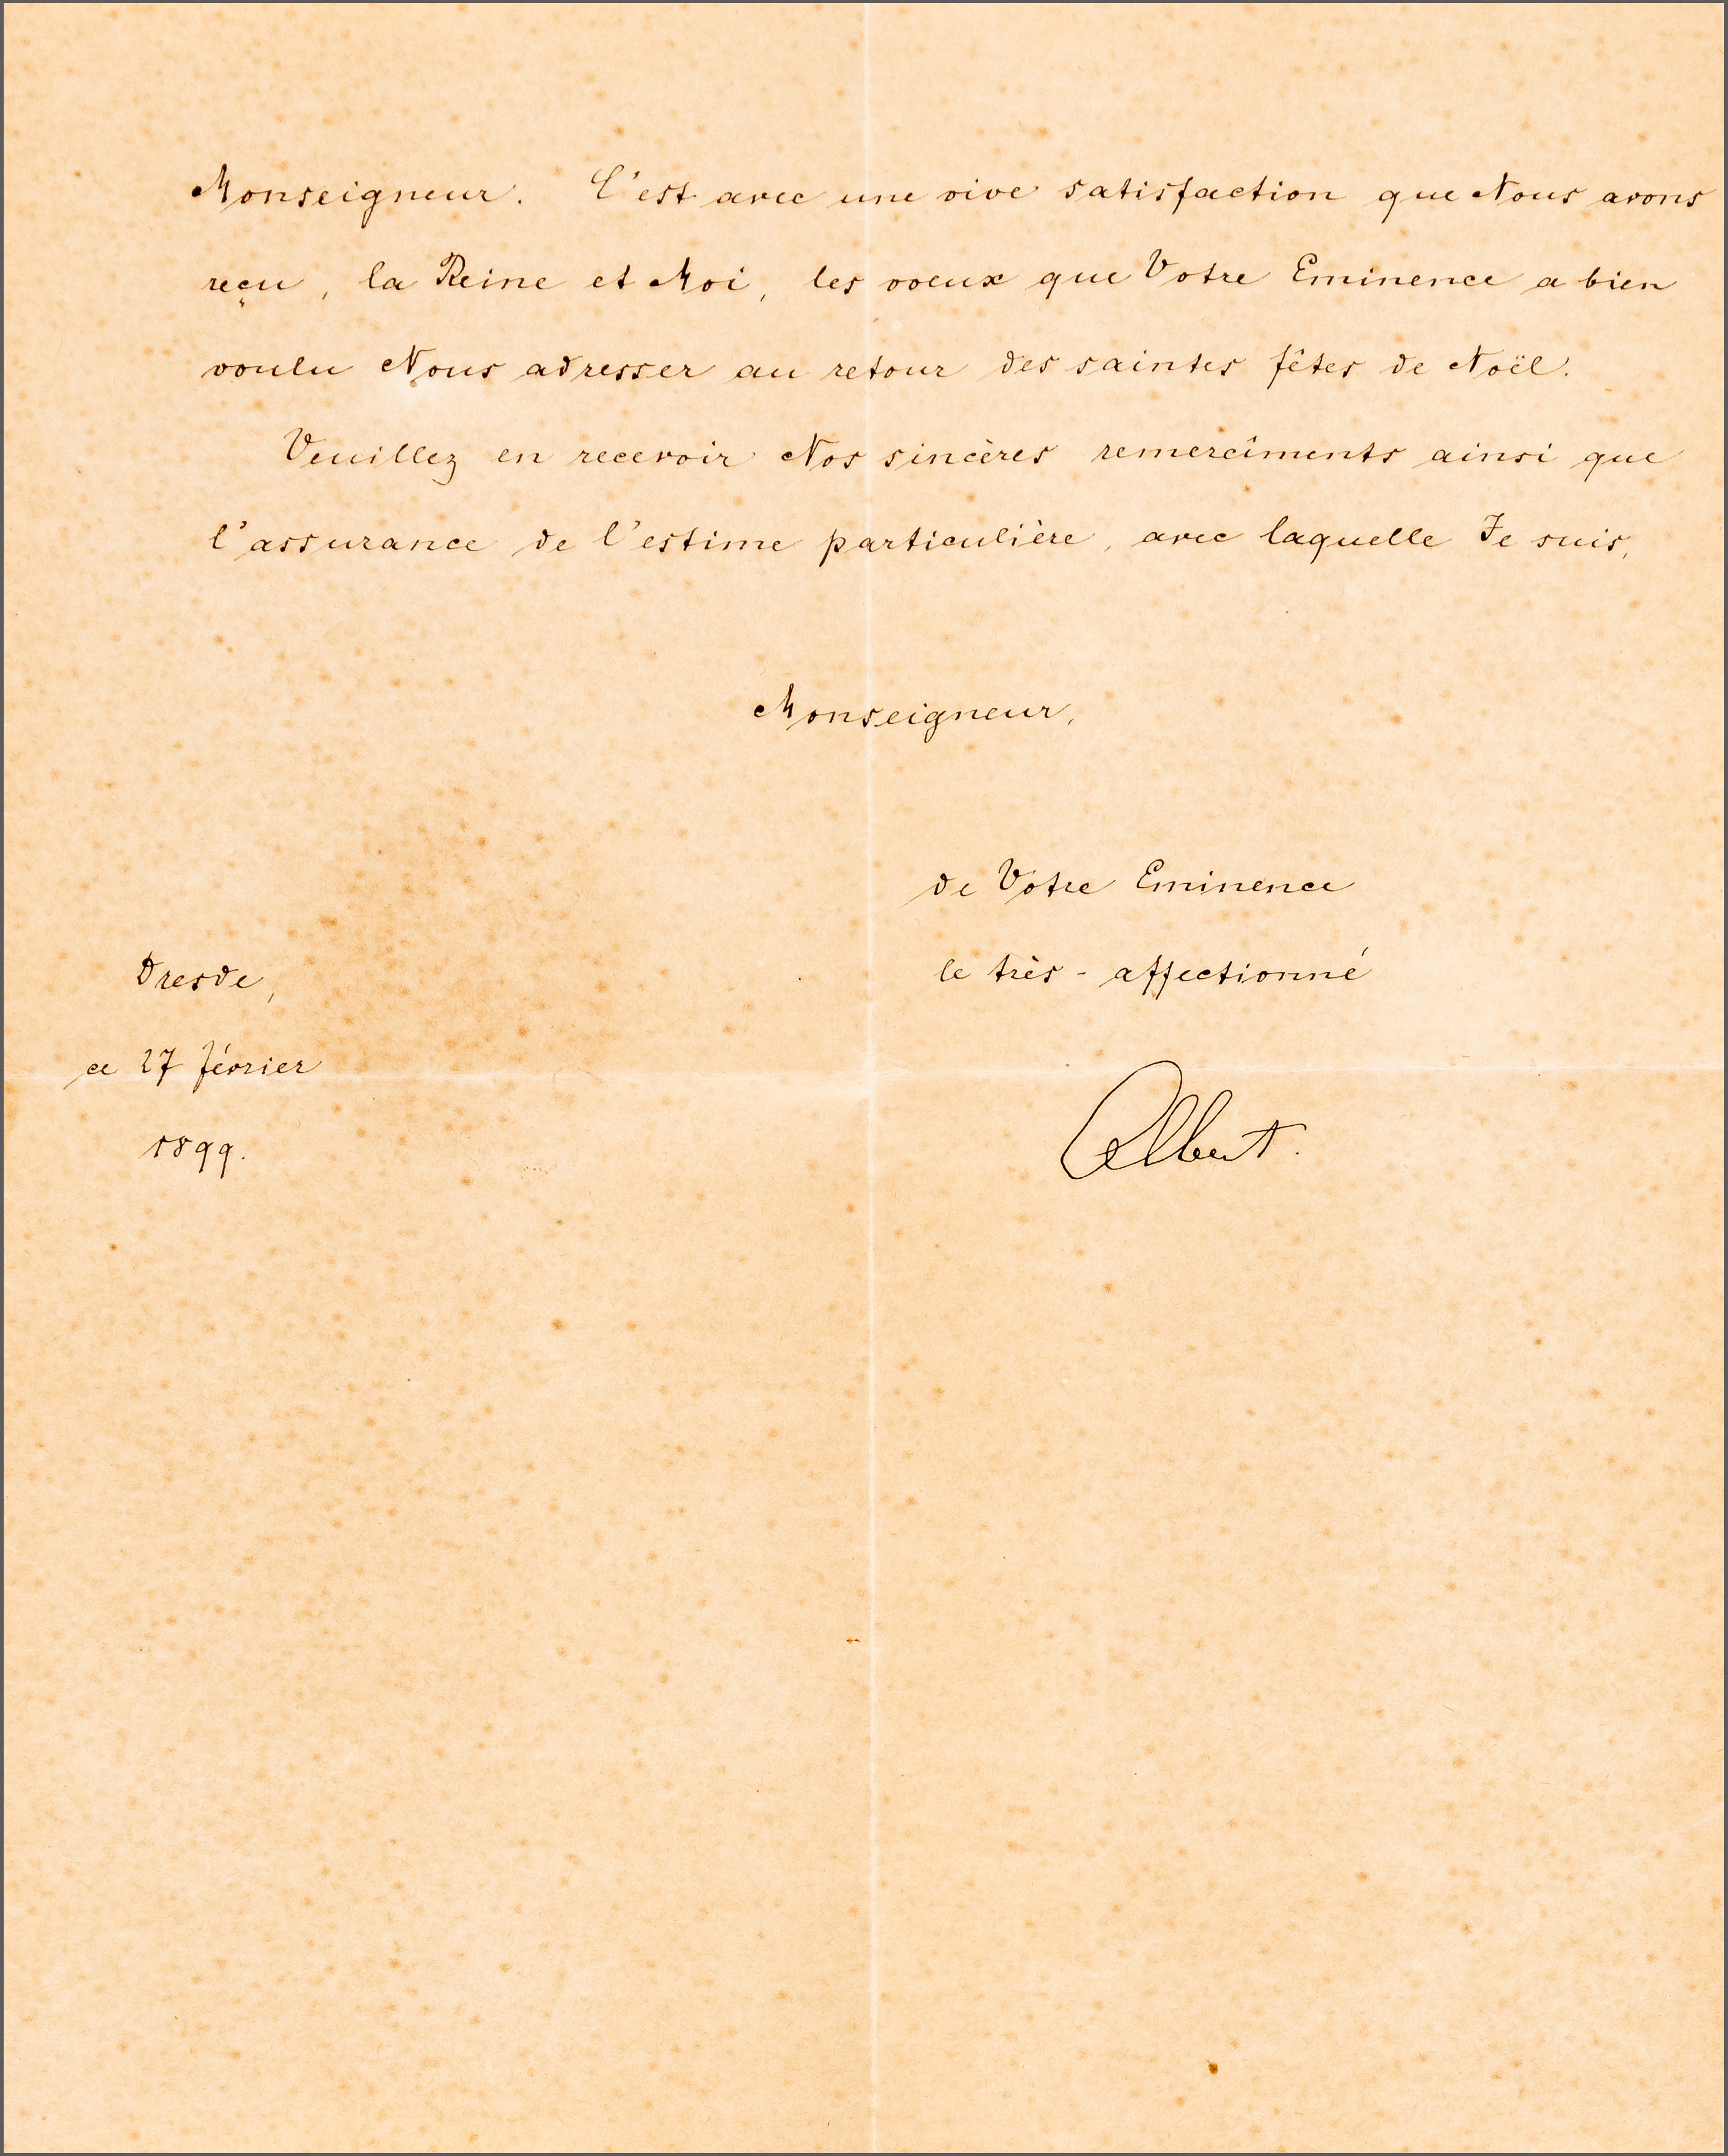 Monseigneur. C'est avec une vive satisfaction que Nous avons
reçu, la Reine et Moi, les voeux que Votre Eminence a bien
voulu Nous adresser au retour des saintes fêtes de Noël.
Veuillez en recevoir Nos sincères remercîments ainsi que
l'assurance de l'estime particulière, avec laquelle Je suis,
Monseigneur,
de Votre Eminence
le très-affectionné
Dresde,
ce 27 février
1899.
Albert.